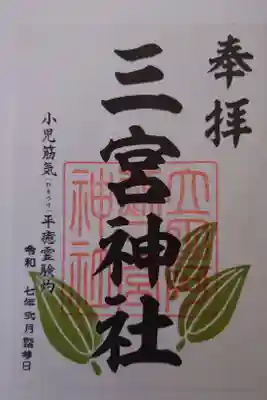 奉拝
三宮神社
小児筋気平癒霊験灼
令和 七年弐月 日